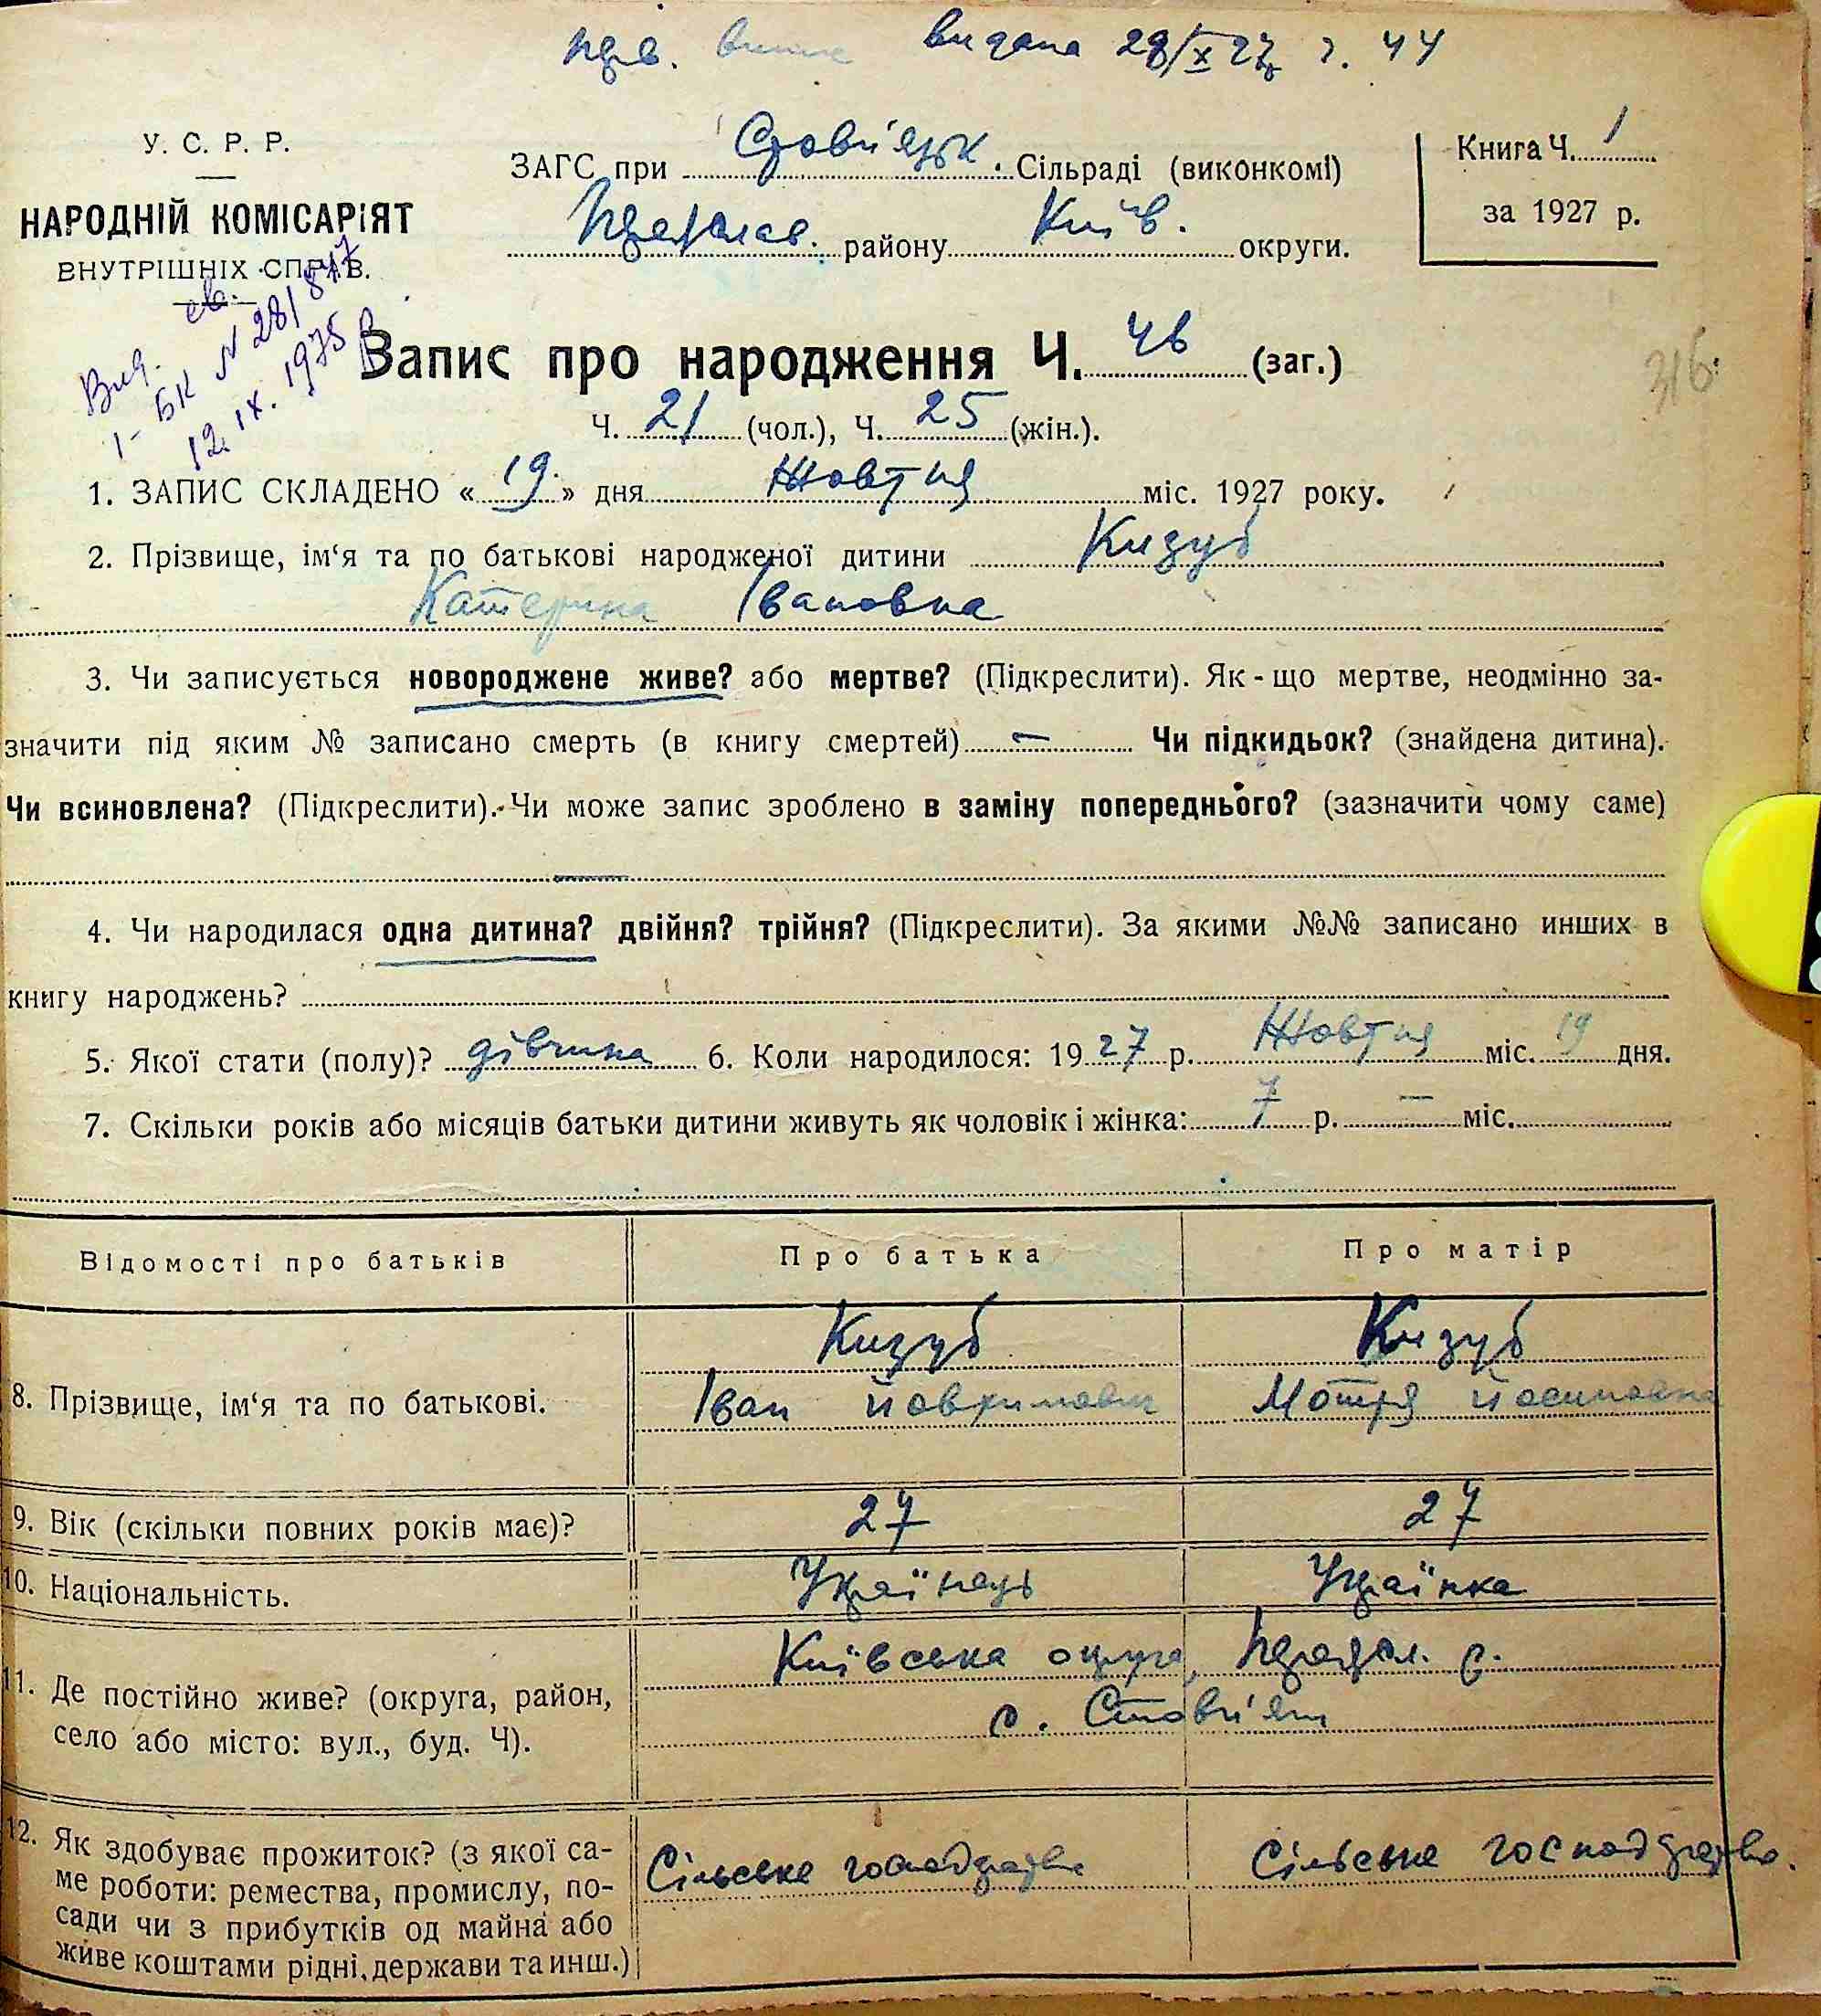 видана 28/X 27 р. Ч 44
У. С. Р. Р.
НАРОДНІЙ КОМІСАРІЯТ
ВНУТРІШНІХ СПРАВ.
ЗАГС при Стовп'язьк. Сільраді (виконкомі)
Переяслав. району Київ. округи.
Книга Ч. 1
за 1927 р.
Вид. св.
I-БК N 281847
12.IX.1975 р
Запис про народження Ч. 46 (заг.)
316.
Ч. 21 (чол.), Ч. 25 (жін.).
1. ЗАПИС СКЛАДЕНО « 19 » дня Жовтня міс. 1927 року.
2. Прізвище, ім‘я та по батькові народженої дитини Кизуб
Катерина Івановна
3. Чи записується новороджене живе? або мертве? (Підкреслити). Як - що мертве, неодмінно за-
значити під яким № записано смерть (в книгу смертей) — Чи підкидьок? (знайдена дитина).
Чи всиновлена? (Підкреслити). Чи може запис зроблено в заміну попереднього? (зазначити чому саме)
—
4. Чи народилася одна дитина? двійня? трійня? (Підкреслити). За якими №№ записано инших в
книгу народжень?
5. Якої стати (полу)? дівчина 6. Коли народилося: 1927 р. Жовтня міс. 19 дня.
7. Скільки років або місяців батьки дитини живуть як чоловік і жінка: 7 р. — міс.
Відомості про батьків Про батька Про матір
Кизуб Кизуб
8. Прізвище, ім‘я та по батькові. Іван Йовхимович Мотря Йосиповна
9. Вік (скільки повних років має)? 27 27
10. Національність. Українець Українка
Київська округа, Переясл. р.
11. Де постійно живе? (округа, район,
село або місто: вул., буд. Ч). с. Стовп'яги
12. Як здобуває прожиток? (з якої са- Сільське господарство Сільське господарство.
ме роботи: ремества, промислу, по-
сади чи з прибутків од майна або
живе коштами рідні, держави та инш.)